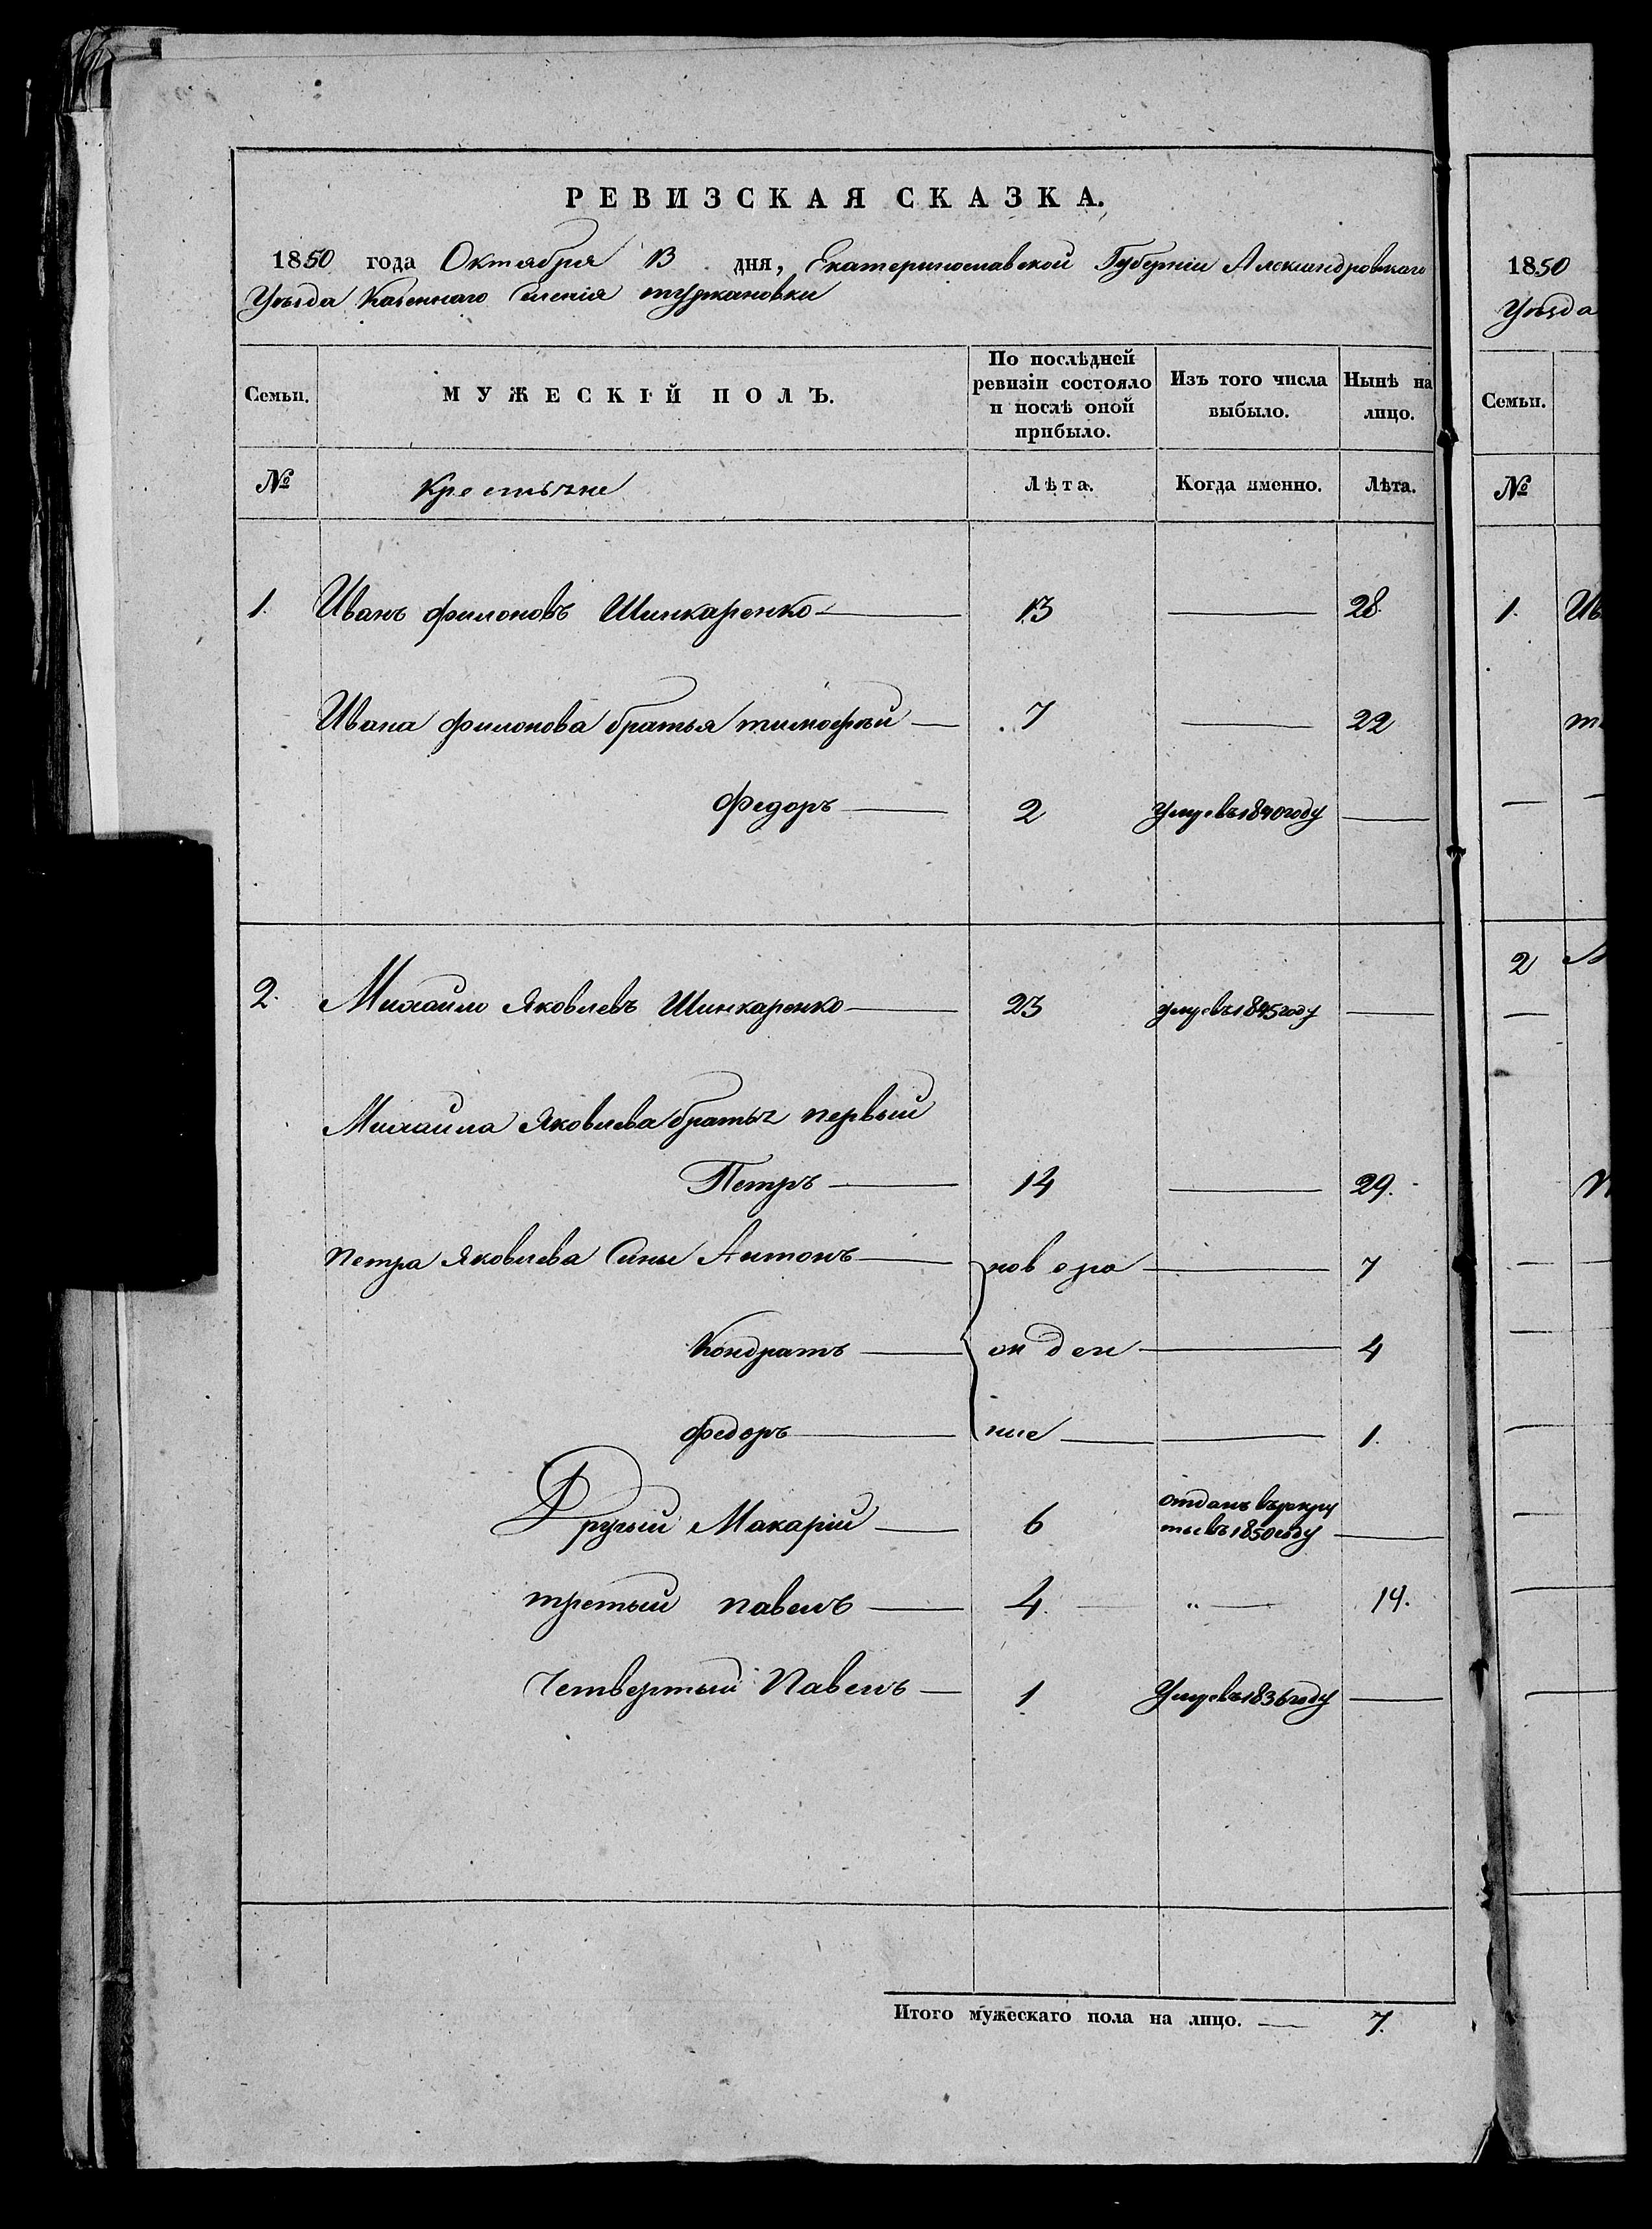 РЕВИЗСКАЯ СКАЗКА.
1850 года Октября 13 дня, Екатеринославской Губерніи Александровскаго
Уѣзда Казеннаго Селенія
Семьи. МУЖЕСКІЙ ПОЛЪ. По послѣдней ревизіи состояло и послѣ оной прибыло. Изъ того числа выбыло. Нынѣ на лицо.
№ Крестьяне Лѣта. Когда именно. Лѣта.
1. Иванъ Филоновъ Шинкаренко 13 — 28
Ивана Филонова братья тимофѣй 7 — 22
Федоръ 2 Умре въ 1840 году —
2. Михаило Яковлевъ Шинкаренко 23 умре въ 1845 году —
Михаила Яковлева братья первый
Петръ 14 — 29.
Петра Яковлева Сины Антонъ новоро — 7
Кондратъ жден — 4
Федоръ ные — 1.
Другий Макарій 6 отданъ въ рекру
ты въ 1850 году —
третий павелъ 4. „ — 19.
Четвертый Павелъ 1 Умре въ 1836 году —
Итого мужескаго пола на лицо. — 7.
1850
Уѣзда
Семьи.
№
1. Ив
2